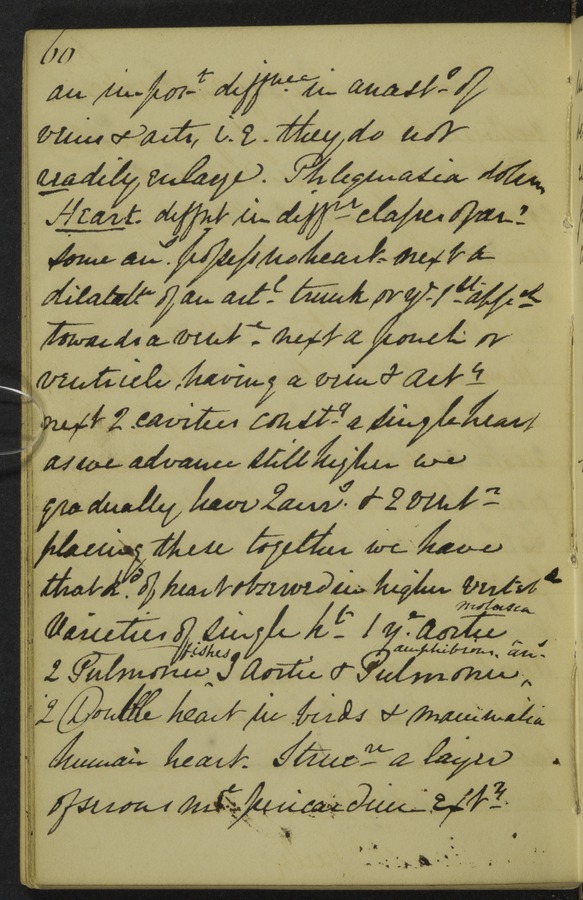 60
an import diffnce in anasts of
veins & arts, i.e. they do not
readily enlarge. Phlegmasia dolens
Heart. diffnt in diffnt classes of ans.
some ans. possess no heart - next a
dilatatn of an artl. trunk or ye 1st
towards a ventr. next a pouch or
ventricle, having a vein & arty
next 2 cavities constg a single heart
as we advance still higher we
gradually have 2 aurs. & 2 ventrs
placing these together we have
that kd. of heart observed in higher vertebe
Varieties of single ht. 1 ye. Aortic molusca
2 Pulmonic fishes 3 Aortic & Pulmonic amphibious ans.
2 Double heart in birds & mammalia
human heart. Strucre a layer
of serous mt. pericardium extly